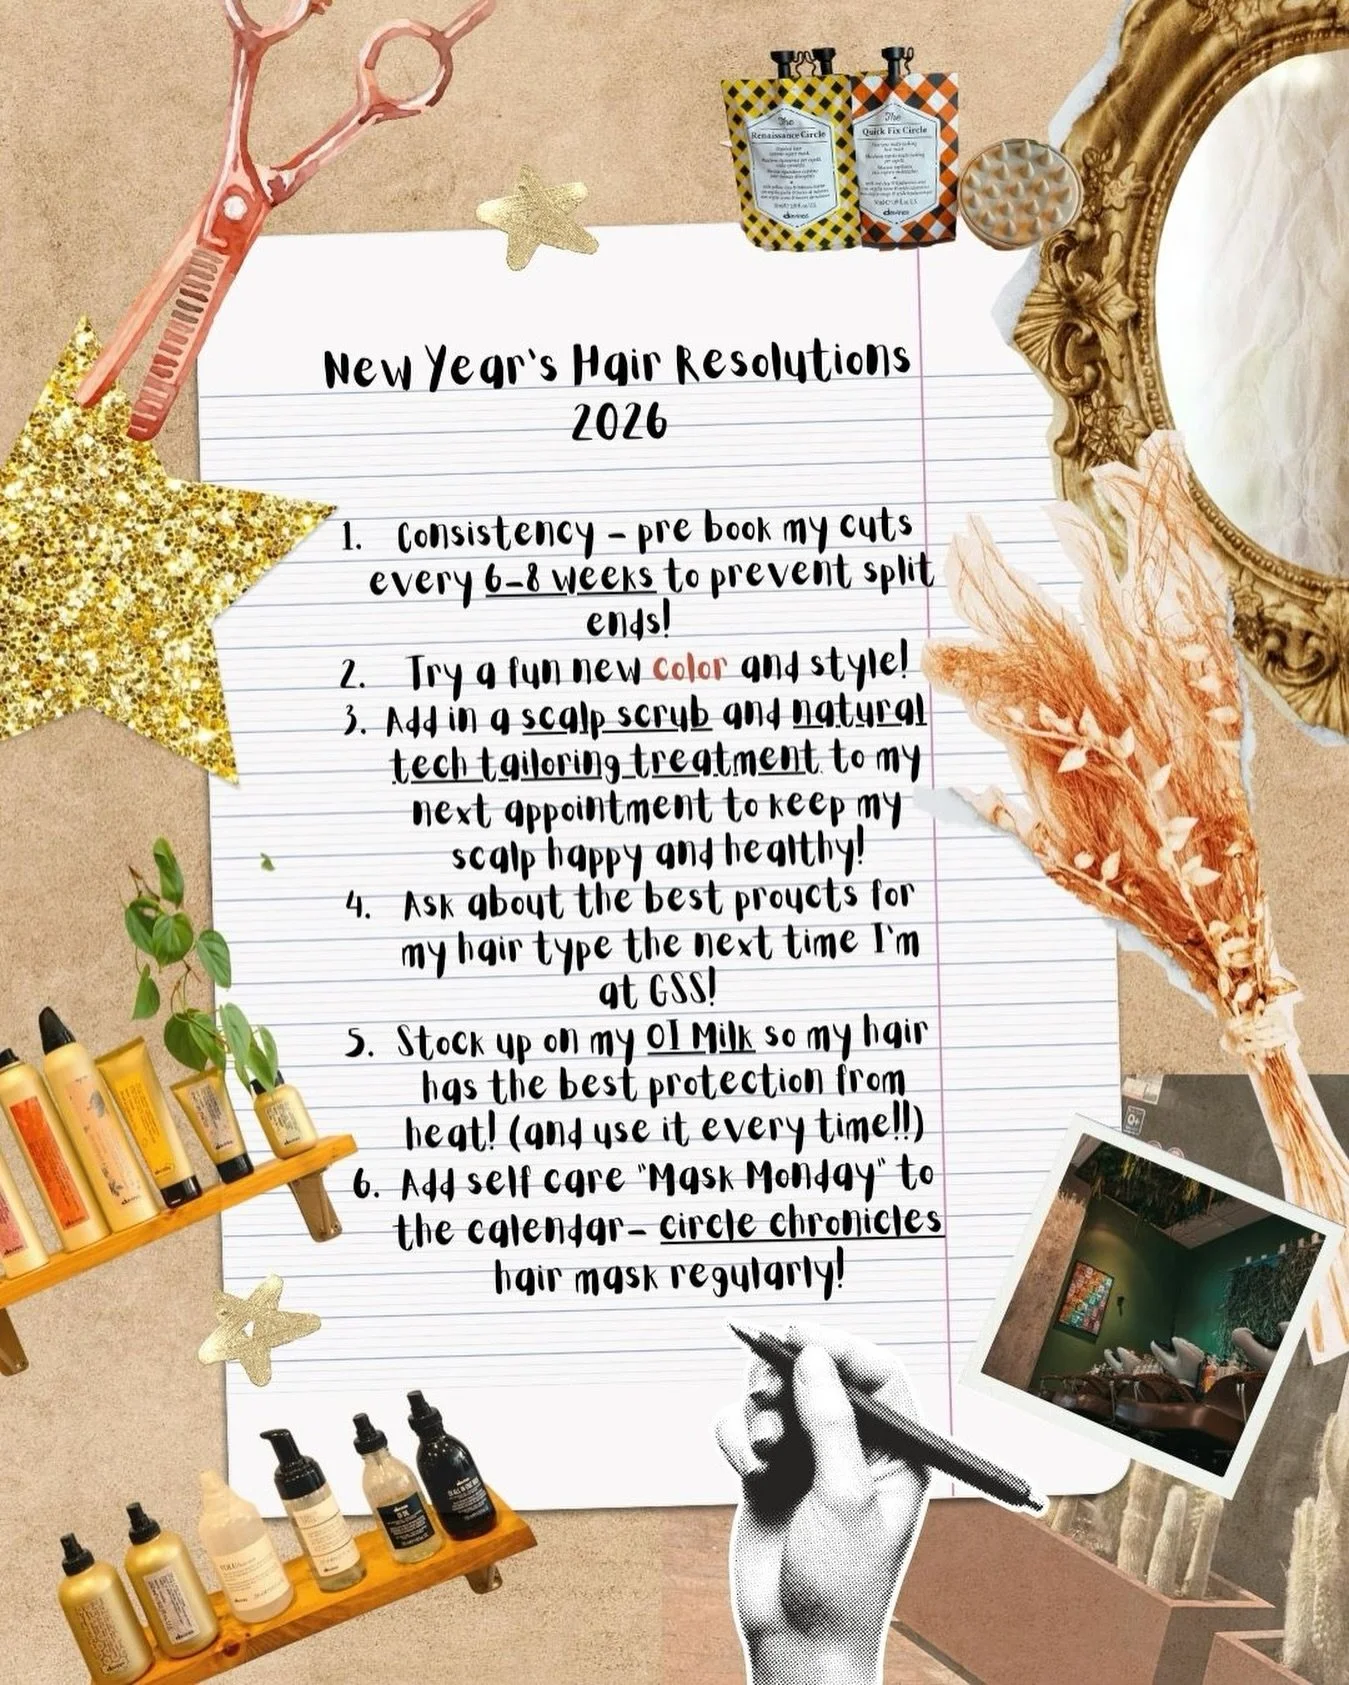 The
Renaissance Circle
davines
The
Quick Fix Circle
davines
New Year's Hair Resolutions
2026
1. Consistency - pre book my cuts
every 6-8 weeks to prevent split
ends!
2. Try a fun new color and style!
3. Add in a scalp scrub and natural
tech tailoring treatment to my
next appointment to keep my
scalp happy and healthy!
4. Ask about the best proucts for
my hair type the next time I'm
at GSS!
5. Stock up on my OI Milk so my hair
has the best protection from
heat! (and use it every time!!)
6. Add self care "Mask Monday" to
the calendar- circle chronicles
hair mask regularly!